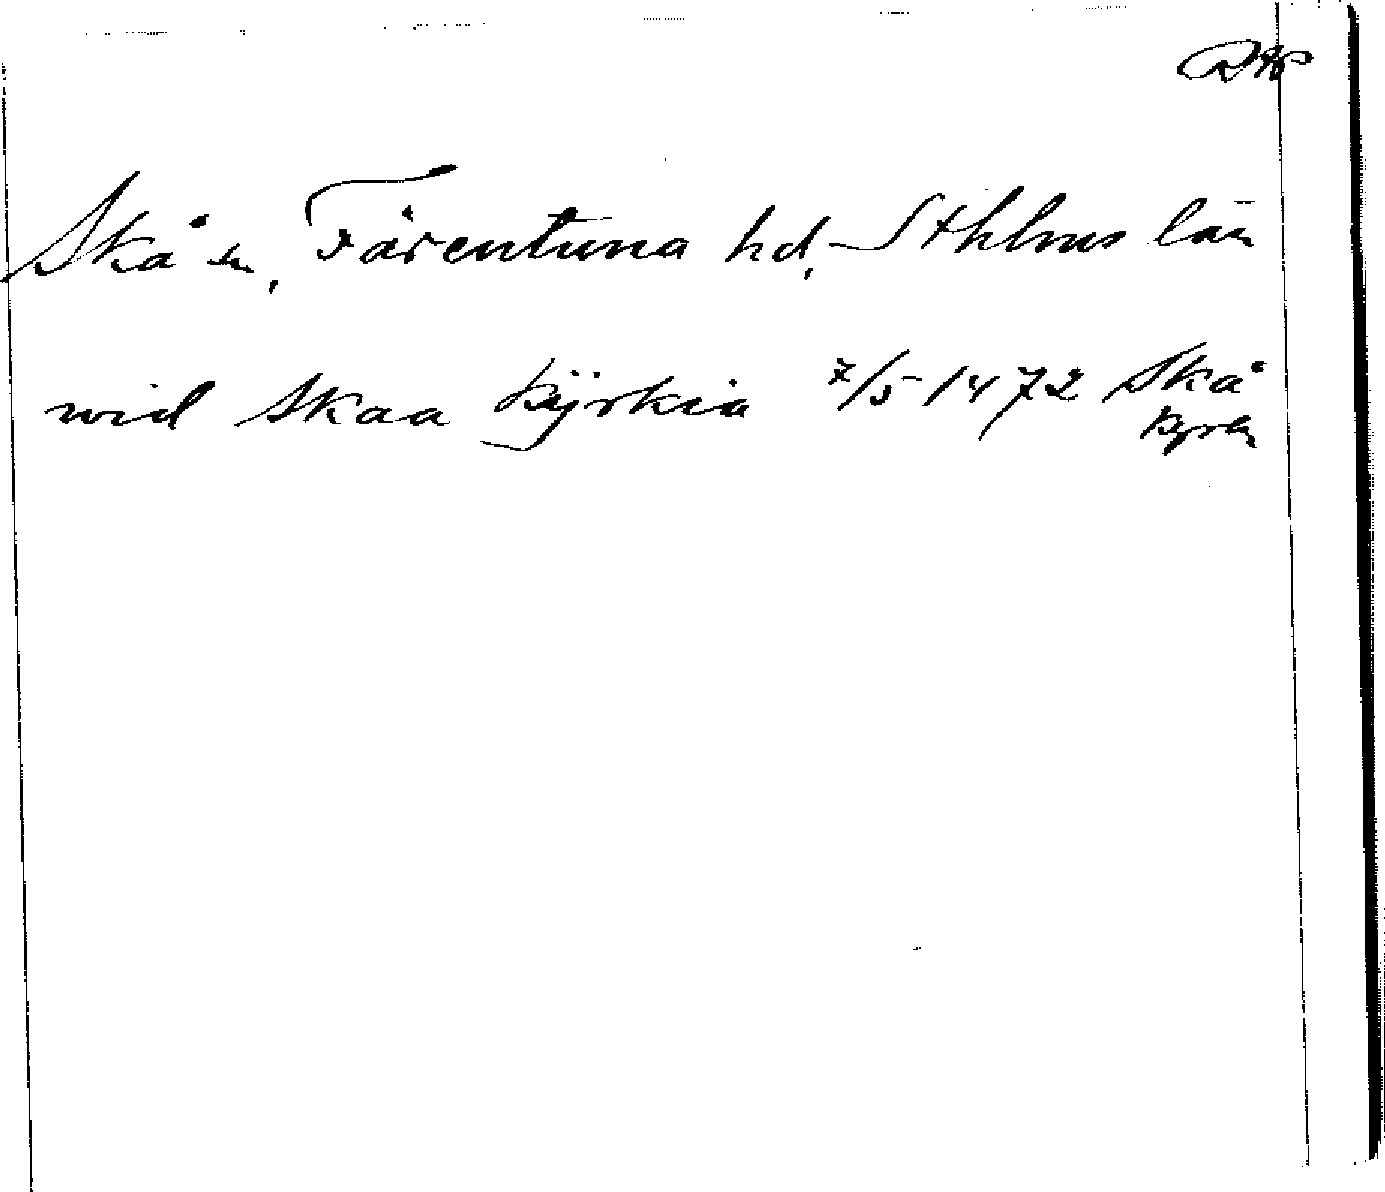 Skå sn, Färentuna hd, Sthlms län
wid Skaa kÿrkia 7/5 1472 Skå
kyrka